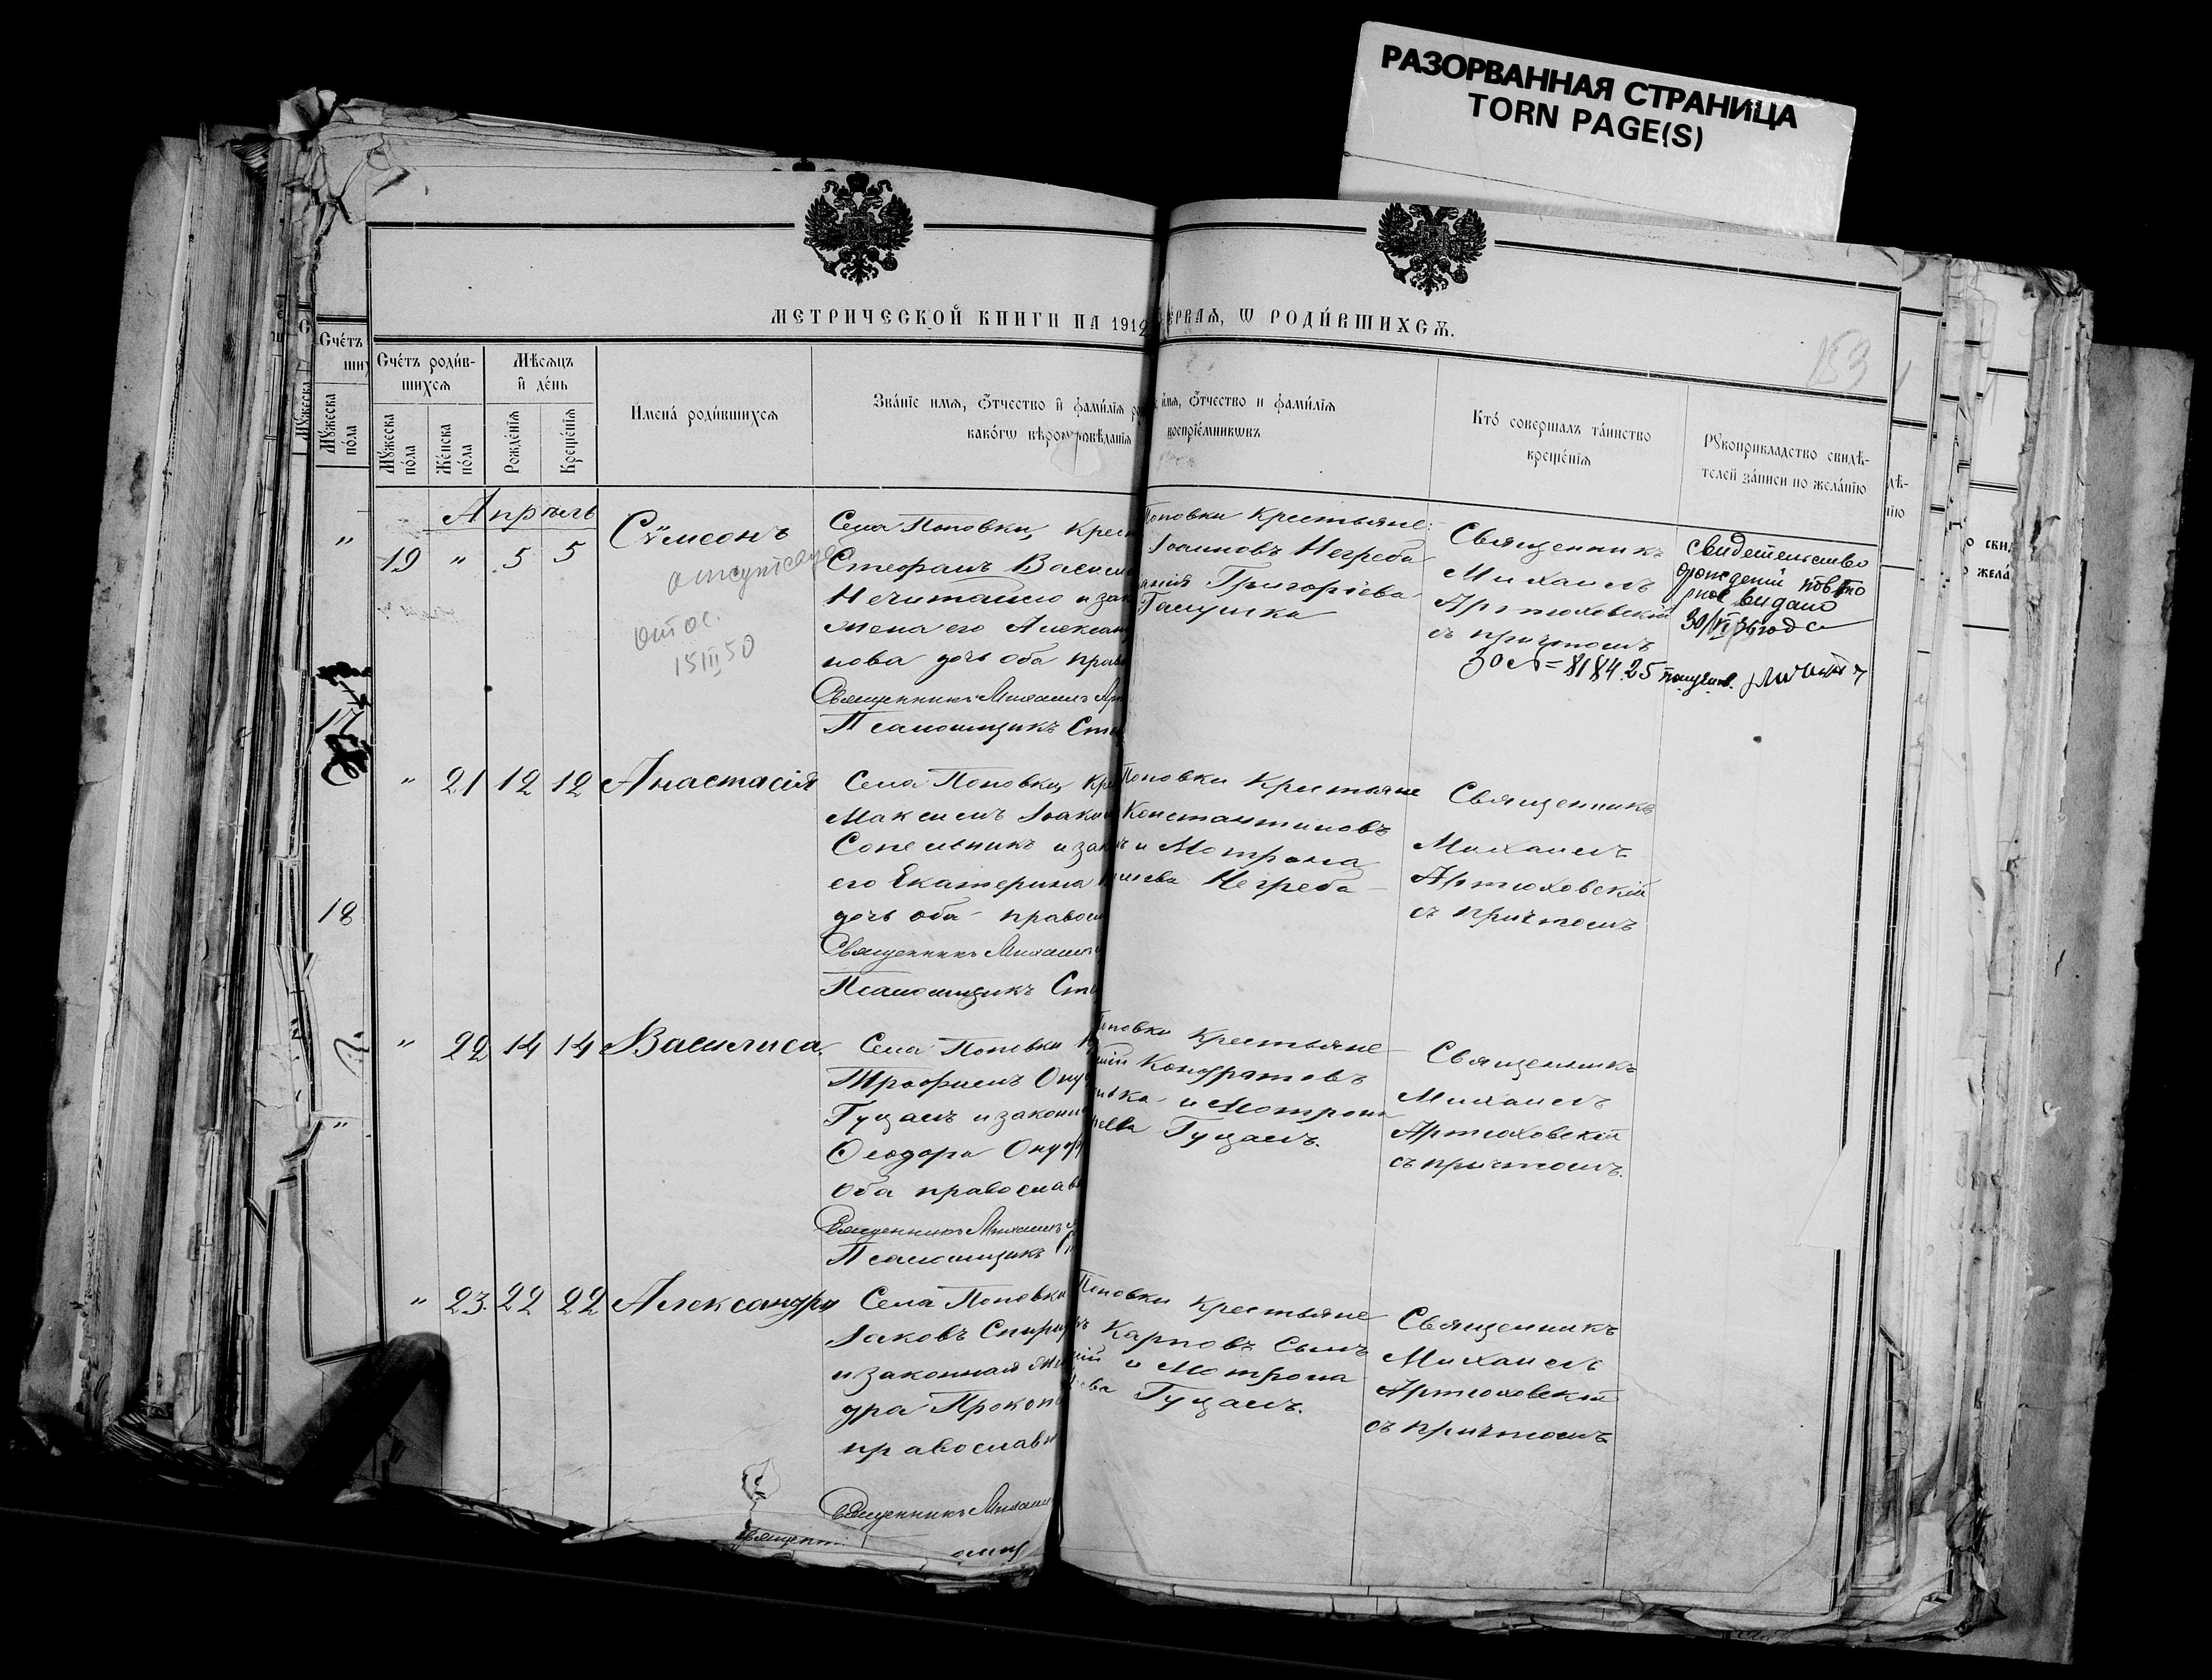 РАЗОРВАННАЯ СТРАНИЦА
TORN PAGE(S)
МЕТРИЧЕСКОЙ КНИГИ НА 1912
ЕРВАЯ, Ѡ РОДИ́ВШИХСѦ.
153
Счéтъ роди́в-
шихсѧ
Мѣсѧцъ
и҆ дéнь
Мꙋжеска
пóла
Жéнска
пóла
Рождéнїѧ
Крещéнїѧ
И҆менá роди́вшихсѧ
Звáнїе имѧ, Ѻтчество и҆ фами́лїѧ ро
какóгѡ вѣроисповѣданїѧ
имѧ, Ѻтчество и фами́лїѧ
воспрїéмникѡвъ
Ктó совершалъ тáинство
крещéнїѧ
Рꙋкоприкладство свидѣ-
телей зáписи по желáнїю
Апрѣль
19 " 5 5
Сѵмеонъ
отсутствует
15 III 50
Села Поповки, Крес
Стефанъ Василь
Нечитайло и зак
жена его Алексан
нова дочь оба прав
Священникъ Михаилъ Ар
Псаломщикъ Сте
Поповки Крестьяне:
Іоанновъ Негреба
Григоріева
Галушка
Священникъ
Михаилъ
Артюховскій
съ причтомъ
свидетельство
о рождении повто
рное видано
30/VI 36 года
ЗОА = 8184.25
" 21 12 12 Анастасія
Села Поповки, Кре
Максимъ Іоаки
Сопельникъ и зак
его Екатерина
дочь оба правосл
Священникъ Михаилъ
Псаломщикъ Сте
Поповки Крестьяне
Константиновъ
и Мотрона
Негреба
Священникъ
Михаилъ
Артюховскій
съ причтомъ
" 22 14 14 Василиса
Села Поповки
Трофимъ Ону
Гуцалъ и законн
Ѳеодора Онуф
оба православ
Священникъ Михаилъ
Псаломщикъ
Поповки Крестьяне
Кондратовъ
и Мотрона
Гуцалъ.
Священникъ
Михаилъ
Артюховскій
съ причтомъ.
" 23. 22 22 Александра
Села Поповки
Іаковъ Спири
и законная же
дра Прокоп
православн
Священникъ Михаил
Поповки Крестьяне
Карповъ Сынъ
и Мотрона
Гуцалъ.
Священникъ
Михаилъ
Артюховскій
съ причтомъ
17
18